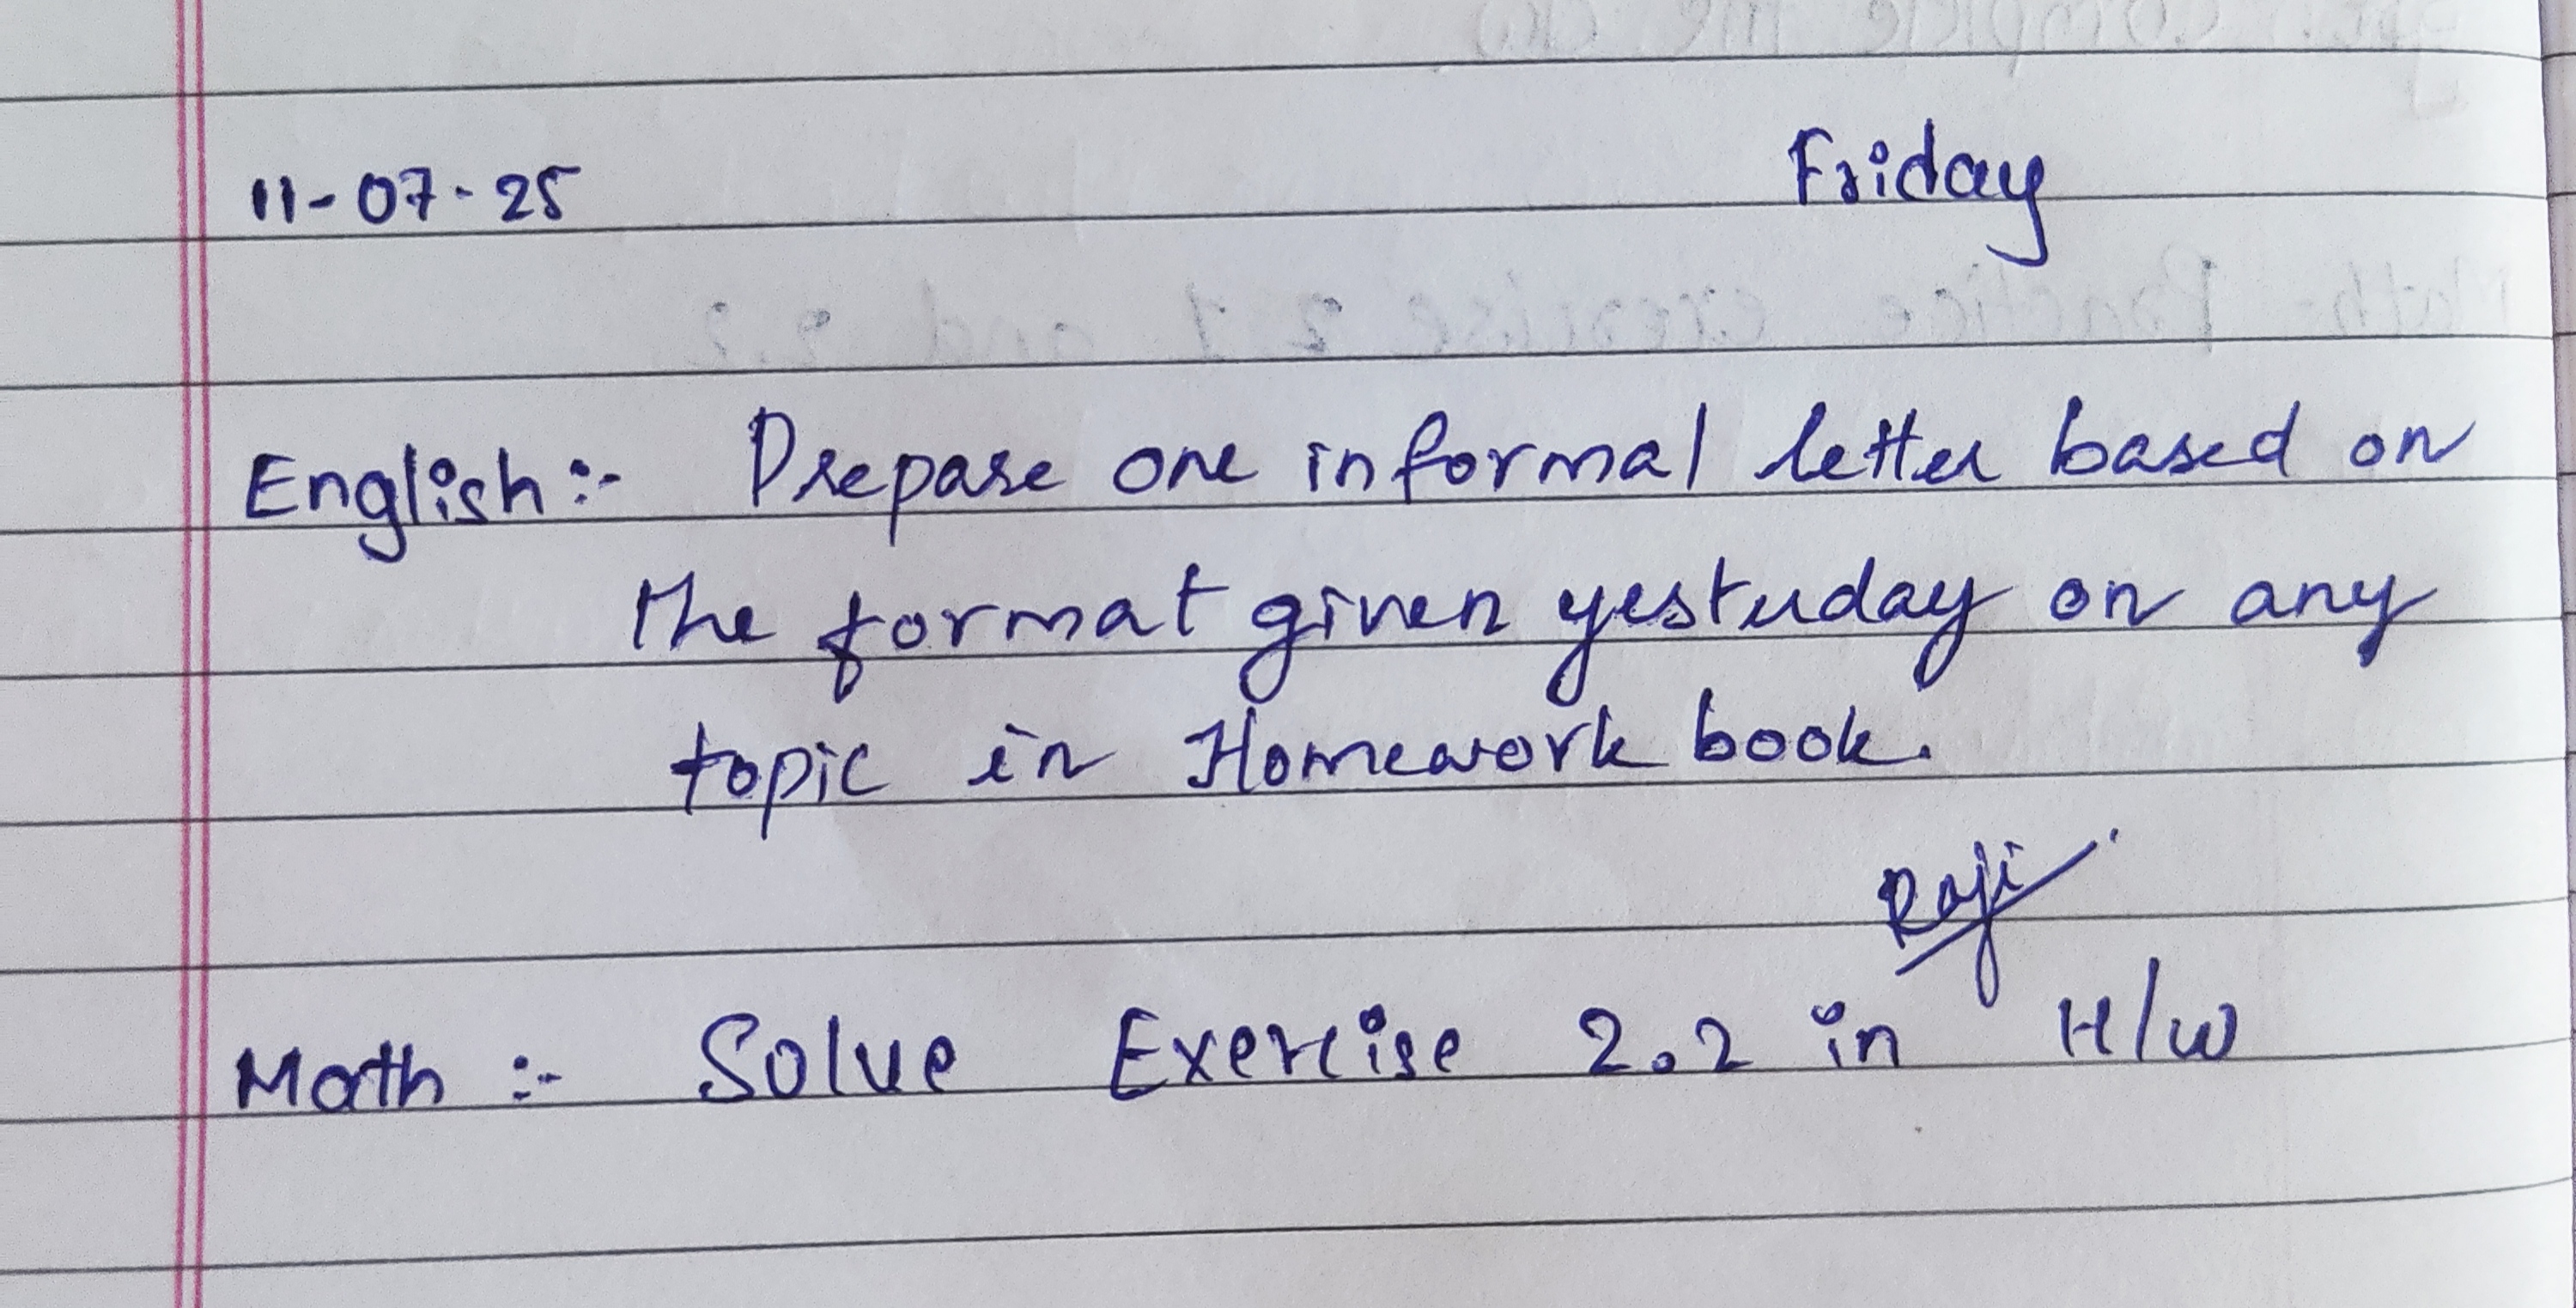 11-07-25 Friday
English:- Prepare one informal letter based on
the format given yesterday on any
topic in Homework book.
Raji
Math :- Solve Exercise 2.2 in H/W